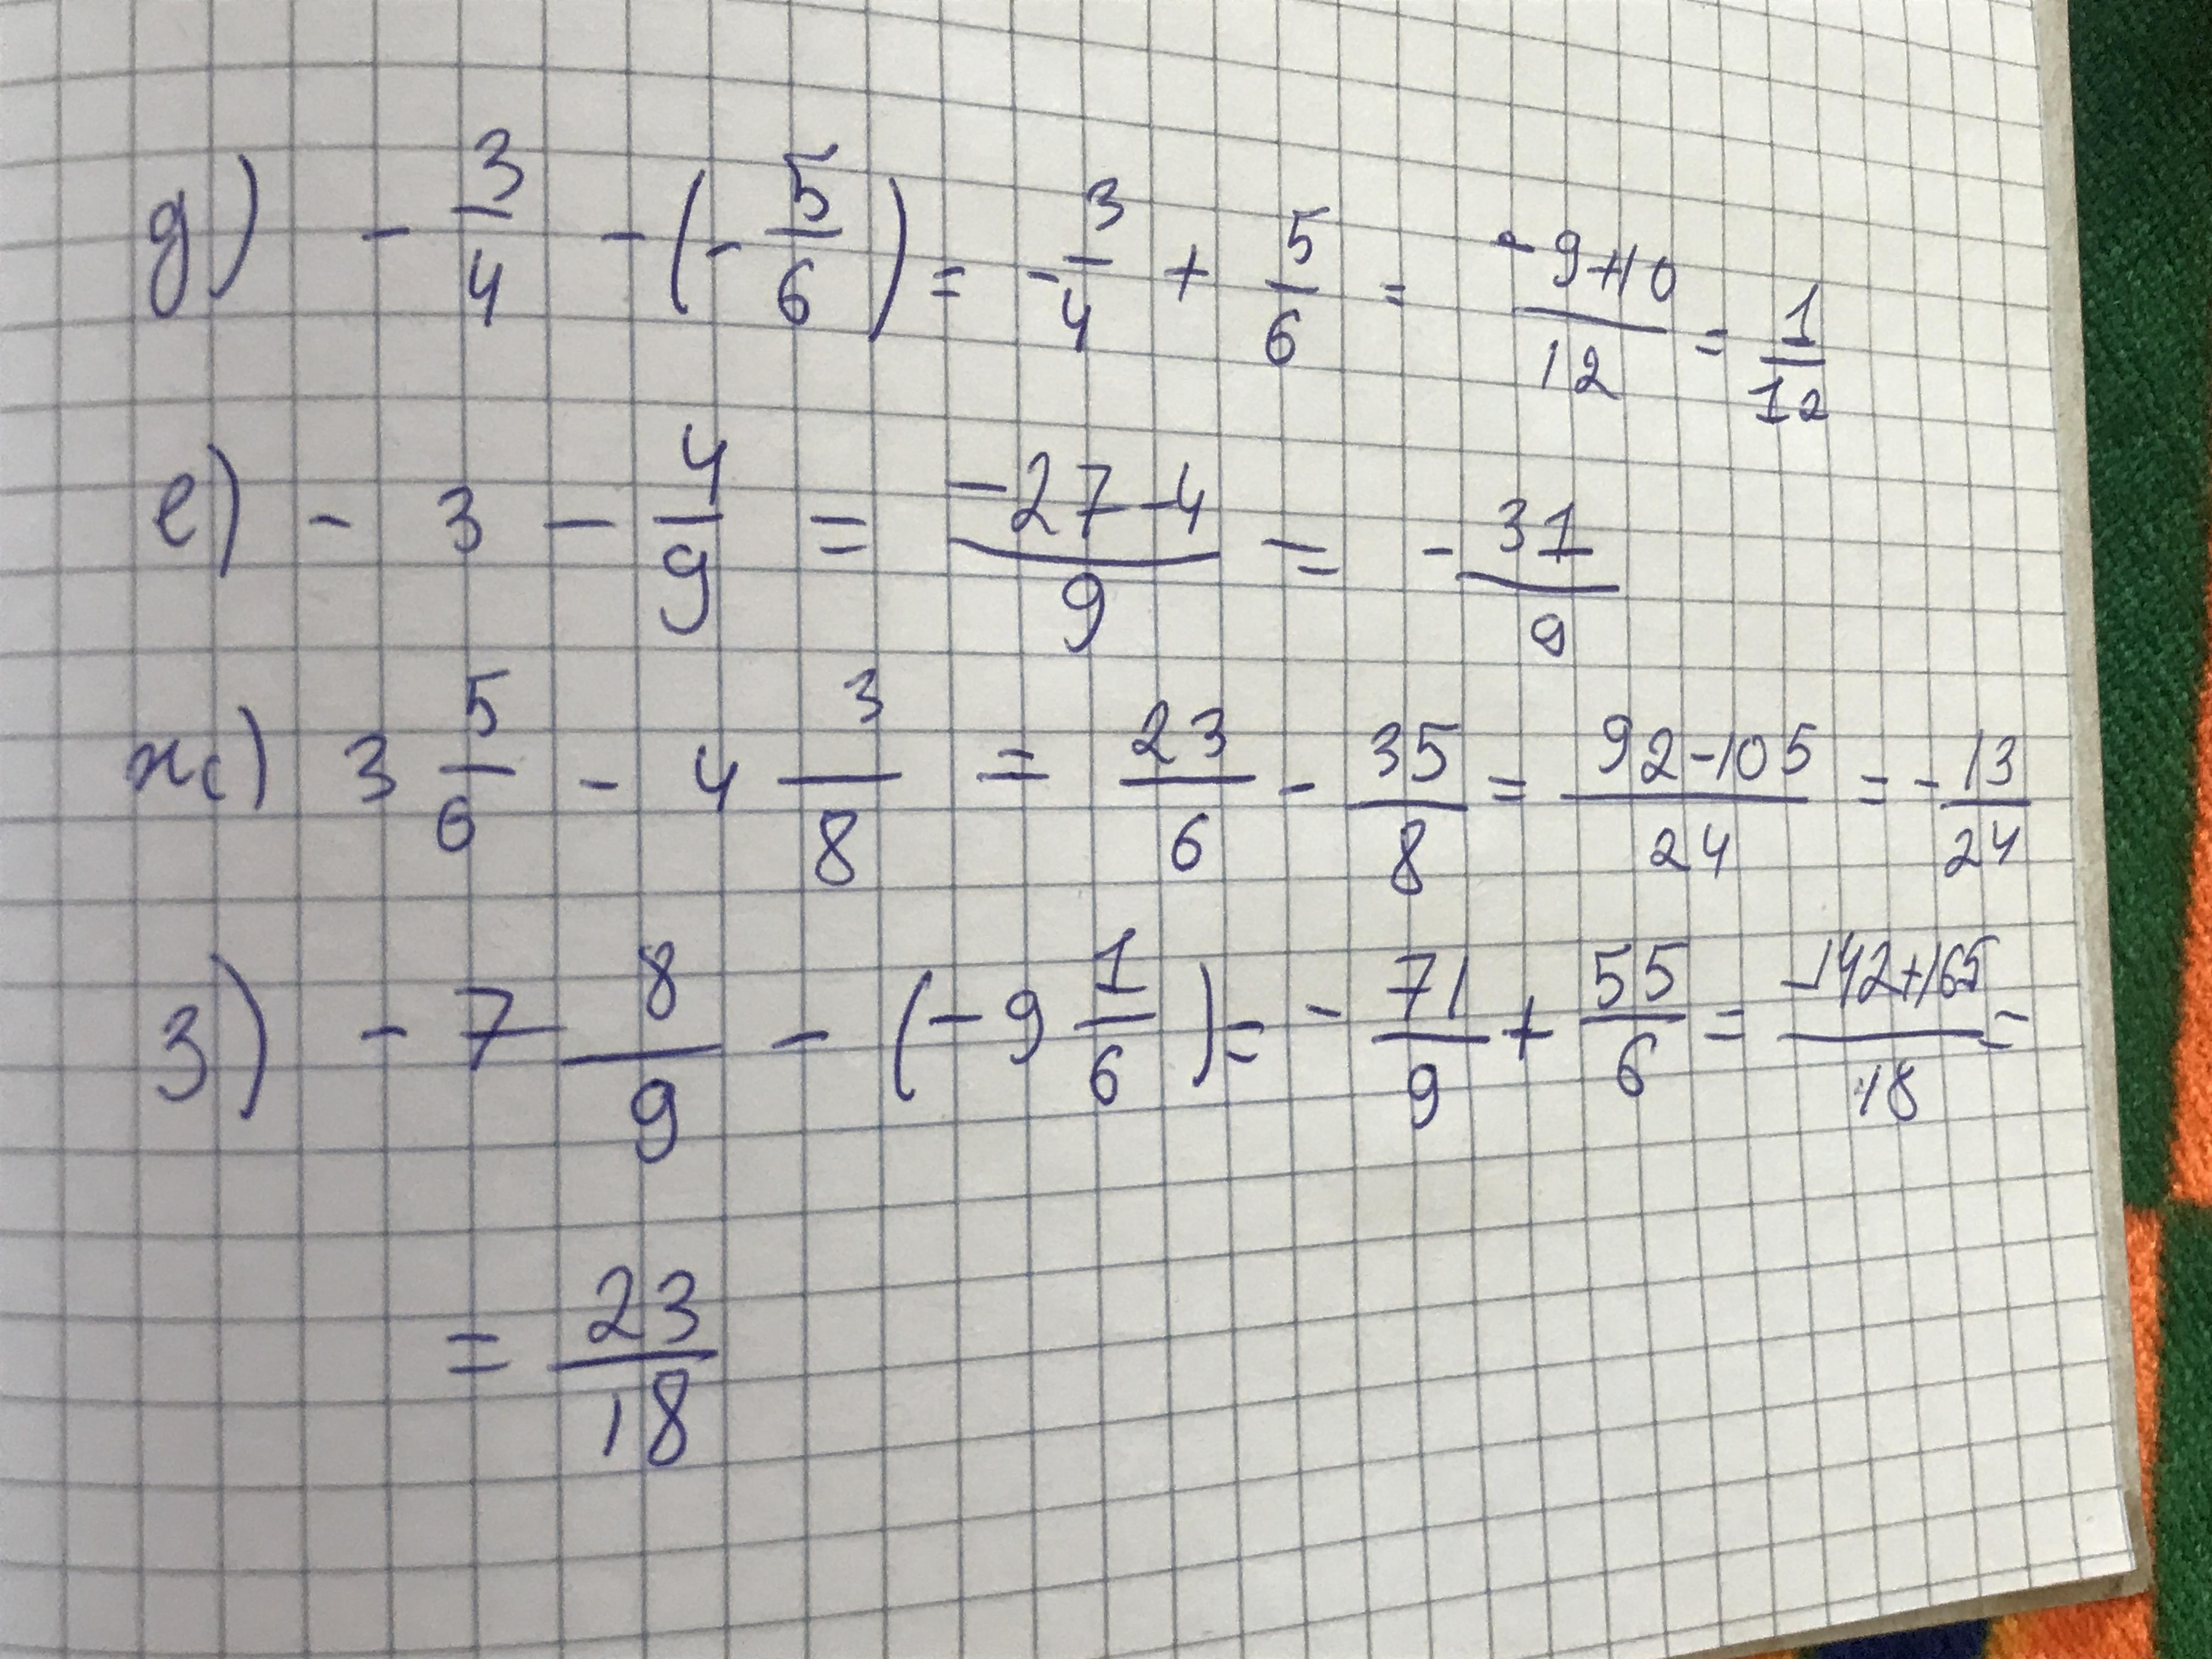 д) - 3/4 - (- 5/6) = - 3/4 + 5/6 = (-9+10)/12 = 1/12
е) - 3 - 4/9 = (-27-4)/9 = - 31/9
ж) 3 5/6 - 4 3/8 = 23/6 - 35/8 = (92-105)/24 = - 13/24
з) - 7 8/9 - (-9 1/6) = - 71/9 + 55/6 = (-142+165)/18 =
= 23/18